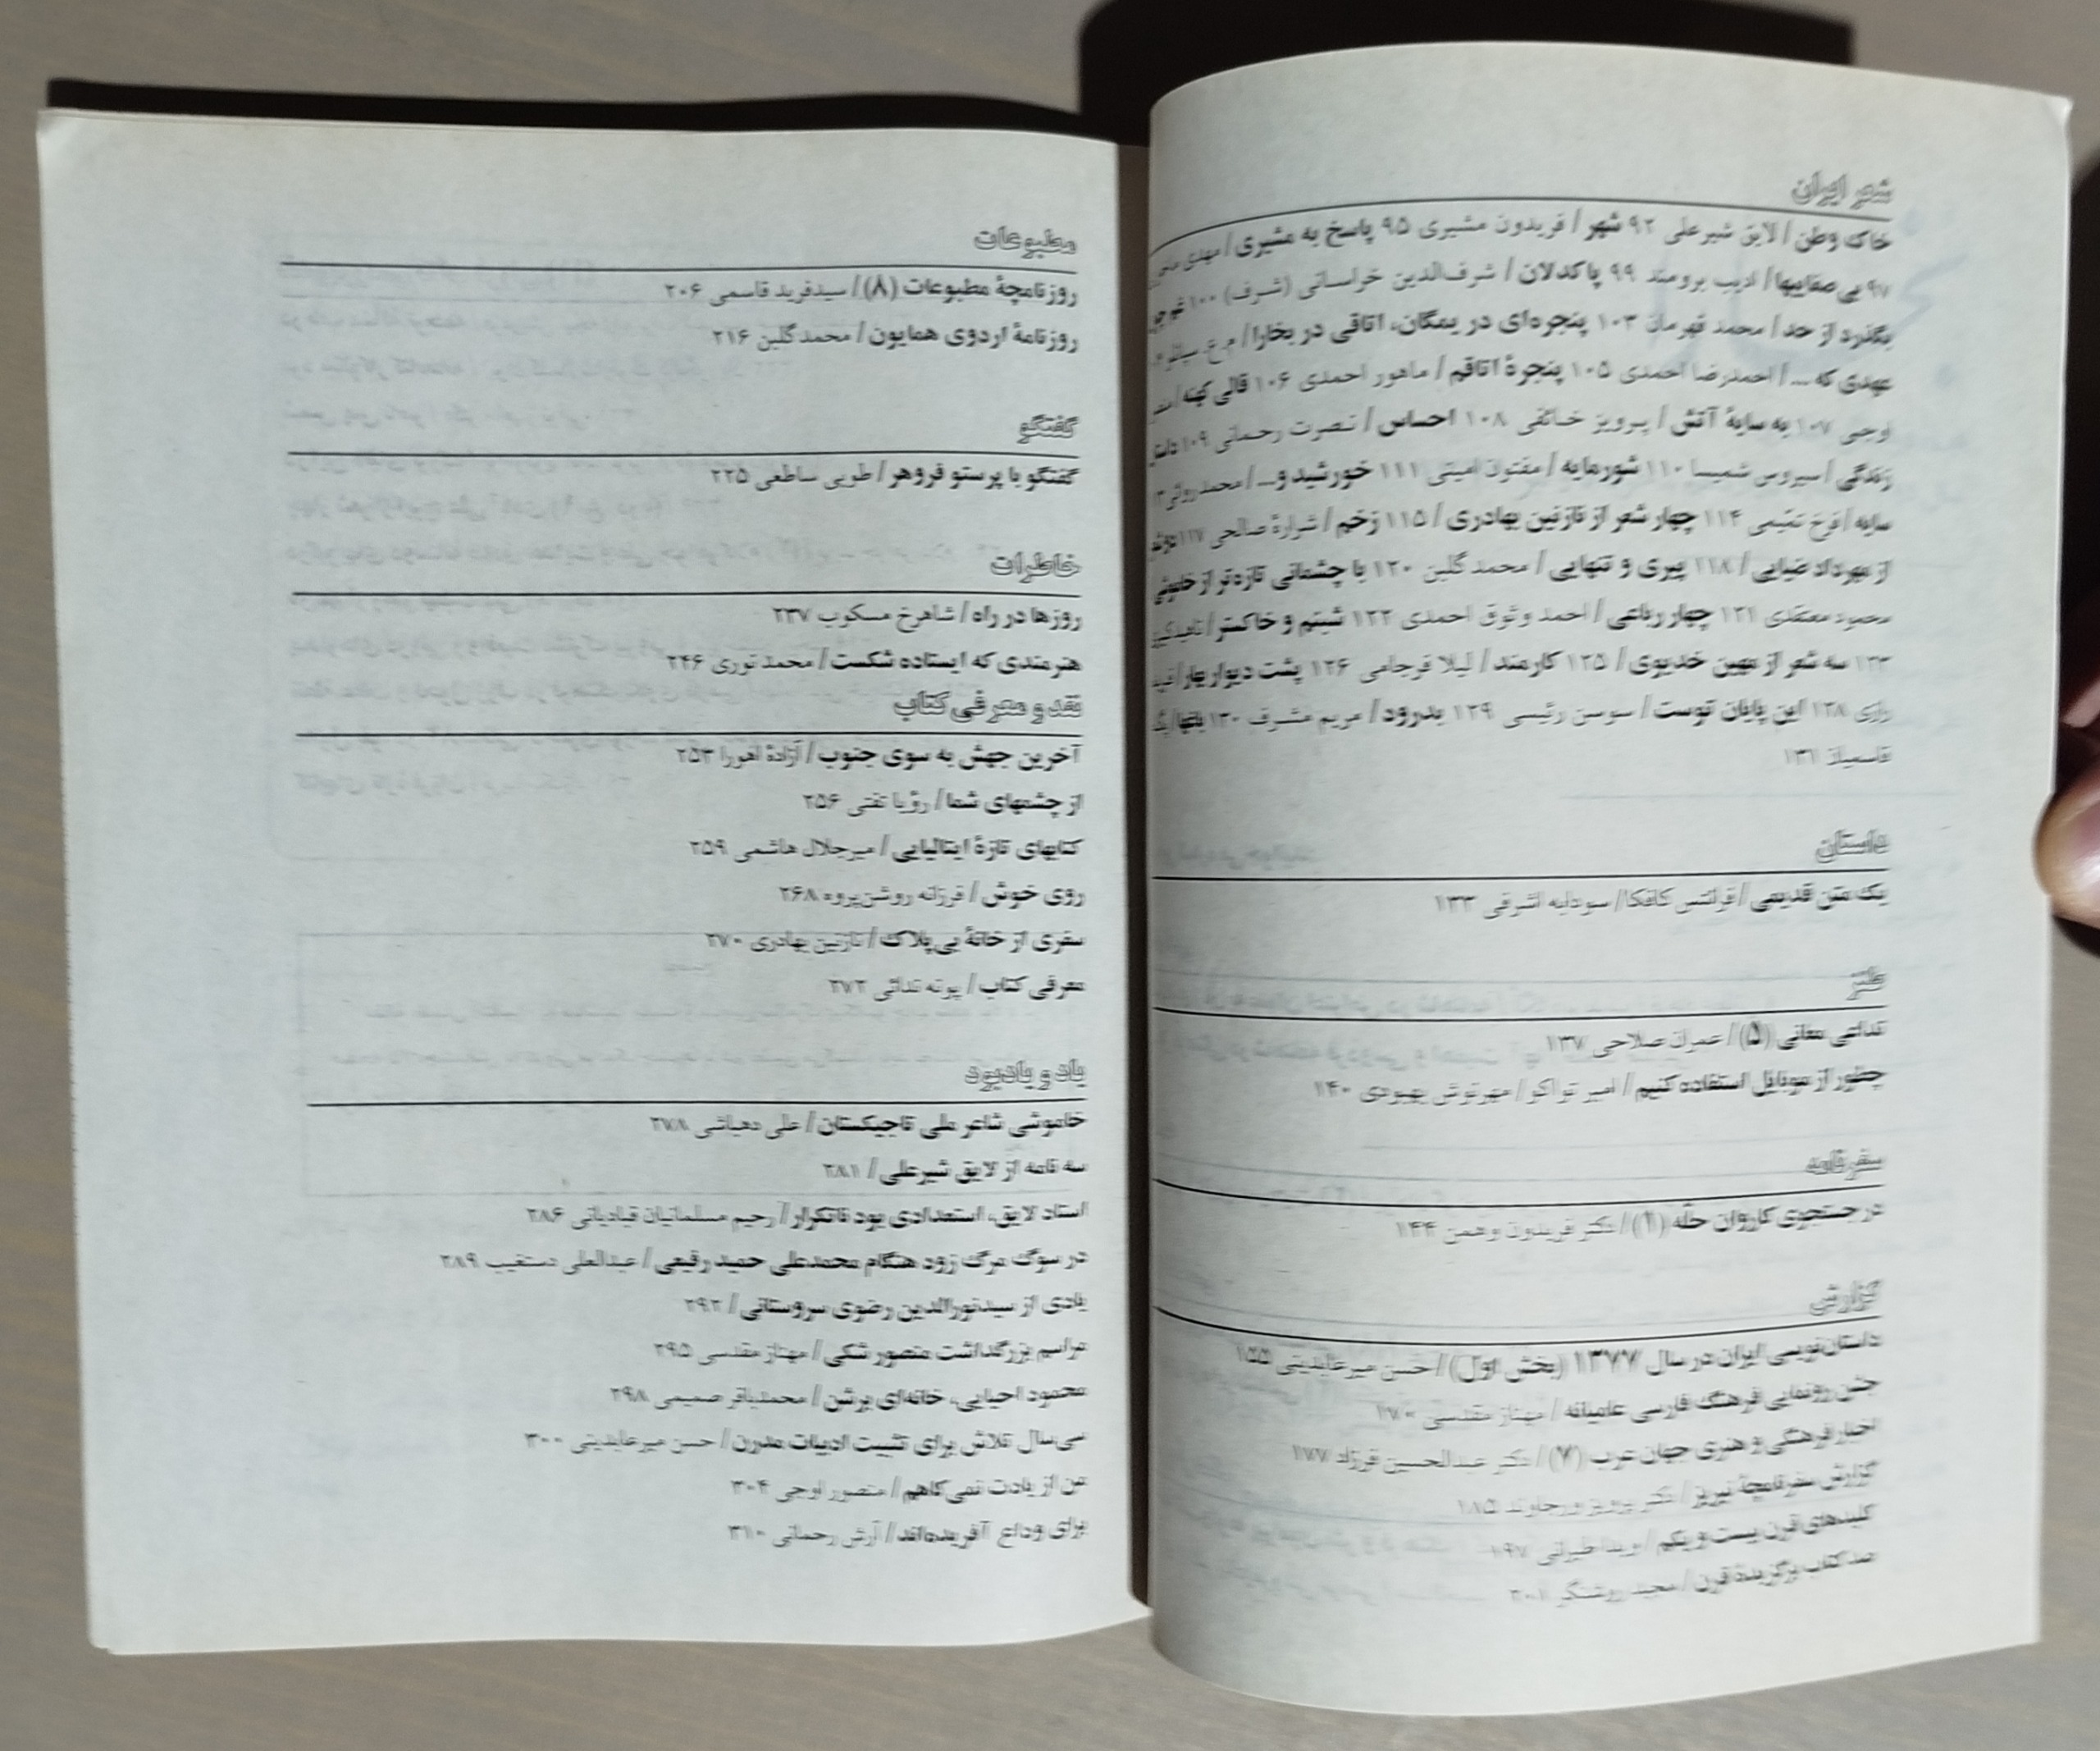 شعر ایران
خاک وطن / لایق شیرعلی ۹۲ شهر / فریدون مشیری ۹۵ پاسخ به مشیری / مهدی
۹۷ بی‌صفاییها / ادیب برومند ۹۹ پاکدلان / شرف‌الدین خراسانی (شرف) ۱۰۰ غم
بگذرد از حد / محمد قهرمان ۱۰۳ پنجره‌ای در یمگان، اتاقی در بخارا / م.ع. سپانلو
عهدی که ... / احمدرضا احمدی ۱۰۵ پنجرهٔ اتاقم / ماهور احمدی ۱۰۶ قالی کهنه /
اوجی ۱۰۷ به سایهٔ آتش / پرویز خائفی ۱۰۸ احساس / نصرت رحمانی ۱۰۹
زندگی / سیروس شمیسا ۱۱۰ شورمایه / مفتون امینی ۱۱۱ خورشید و... / محمد
سایه / فرخ تمیمی ۱۱۴ چهار شعر از نازنین بهادری / ۱۱۵ زخم / شرارهٔ صالحی ۱۱۷
از مهرداد ضیایی / ۱۱۸ پیری و تنهایی / محمد گلبن ۱۲۰ با چشمانی تازه‌تر از
محمود معتقدی ۱۲۱ چهار رباعی / احمد وثوق احمدی ۱۲۲ شبنم و خاکستر / ناهید
۱۲۳ سه شعر از مهین خدیوی / ۱۲۵ کارمند / لیلا فرجامی ۱۲۶ پشت دیوار بهار /
رازی ۱۲۸ این پایان توست / سوسن رئیسی ۱۲۹ بدرود / مریم مشرف ۱۳۰
۱۳۱
داستان
یک متن قدیمی / فرانتس کافکا / سودابه اشرفی ۱۳۳
طنز
تداعی معانی (۵) / عمران صلاحی ۱۳۷
چطور از موبایل استفاده کنیم / امبرتو اکو / مهرنوش بهبودی ۱۴۰
سفرنامه
در جستجوی کاروان حلّه (۱) / دکتر فریدون وهمن ۱۴۴
گزارش
داستان‌نویسی ایران در سال ۱۳۷۷ (بخش اول) / حسن میرعابدینی ۱۵۵
جشن رونمایی فرهنگ فارسی عامیانه / مهناز مقدسی ۱۷۰
اخبار فرهنگی و هنری جهان عرب (۷) / دکتر عبدالحسین فرزاد ۱۷۷
گزارش سفرنامچهٔ نیریز / دکتر پرویز ورجاوند ۱۸۵
کلیدهای قرن بیست و یکم / ویدا طیرانی ۱۹۷
صد کتاب برگزیدهٔ قرن / مجید روشنگر ۲۰۱
مطبوعات
روزنامچهٔ مطبوعات (۸) / سیدفرید قاسمی ۲۰۶
روزنامهٔ اردوی همایون / محمد گلبن ۲۱۶
گفتگو
گفتگو با پرستو فروهر / طوبی ساطعی ۲۲۵
خاطرات
روزها در راه / شاهرخ مسکوب ۲۳۷
هنرمندی که ایستاده شکست / محمد نوری ۲۴۶
نقد و معرفی کتاب
آخرین جهش به سوی جنوب / آزادهٔ اهورا ۲۵۳
از چشمهای شما / رؤیا تفتی ۲۵۶
کتابهای تازهٔ ایتالیایی / میرجلال هاشمی ۲۵۹
روی خوش / فرزانه روشن‌پروه ۲۶۸
سفری از خانهٔ بی‌پلاک / نازنین بهادری ۲۷۰
معرفی کتاب / پونه ندائی ۲۷۲
یاد و یادبود
خاموشی شاعر ملی تاجیکستان / علی دهباشی ۲۷۸
سه نامه از لایق شیرعلی / ۲۸۱
استاد لایق، استعدادی بود ناتکرار / رحیم مسلمانیان قبادیانی ۲۸۶
در سوگ مرگ زود هنگام محمدعلی حمید رفیعی / عبدالعلی دستغیب ۲۸۹
یادی از سیدنورالدین رضوی سروستانی / ۲۹۲
مراسم بزرگداشت منصور شکی / مهناز مقدسی ۲۹۵
محمود احیایی، خانه‌ای برشن / محمدباقر صمیمی ۲۹۸
سی‌سال تلاش برای تثبیت ادبیات مدرن / حسن میرعابدینی ۳۰۰
من از یادت نمی‌کاهم / منصور اوجی ۳۰۴
برای وداع آفریده‌اند / آرش رحمانی ۳۱۰